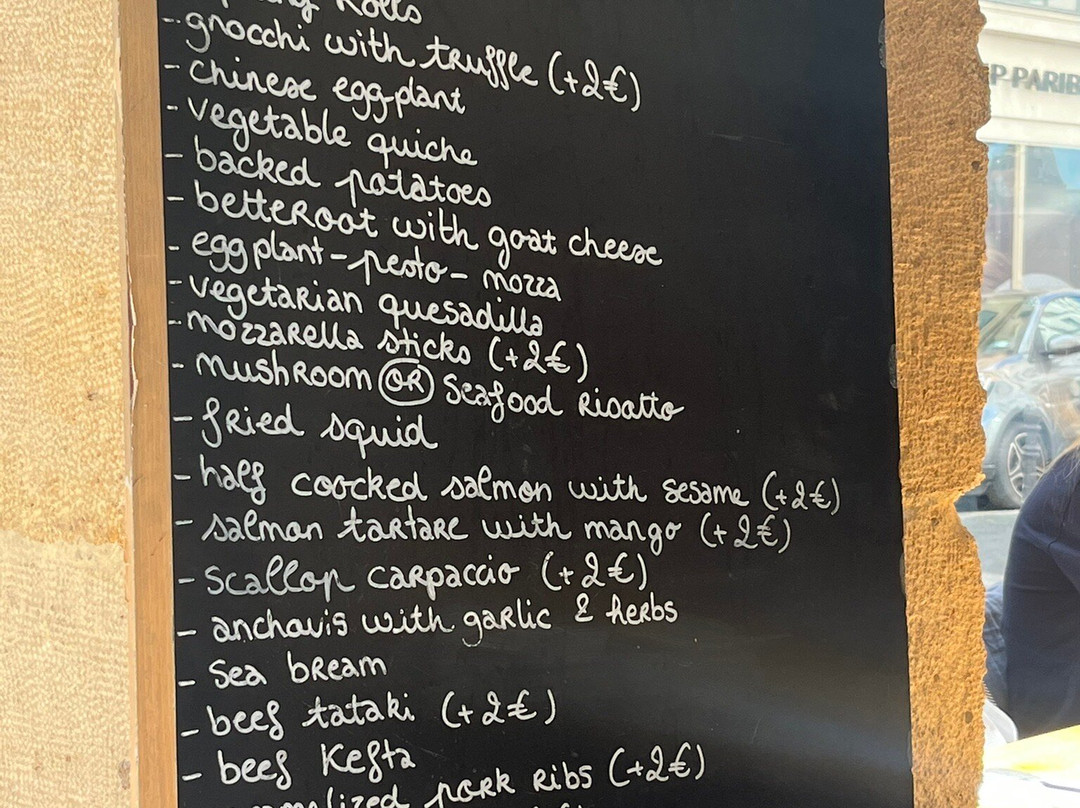 Rolls
- gnocchi with truffle (+2€)
- chinese eggplant
- vegetable quiche
- backed patatoes
- betteRoot with goat cheese
- eggplant - pesto - mozza
- vegetaRian quesadilla
- mozzaRella sticks (+2€)
- mushRoom OR Seafood Risotto
- fRied squid
- half coocked salmon with sesame (+2€)
- salmon taRtaRe with mango (+2€)
- Scallop caRpaccio (+2€)
- anchovis with gaRlic & heRbs
- Sea bReam
- beef tataki (+2€)
- beef Kefta
poRk Ribs (+2€)
P PARIB